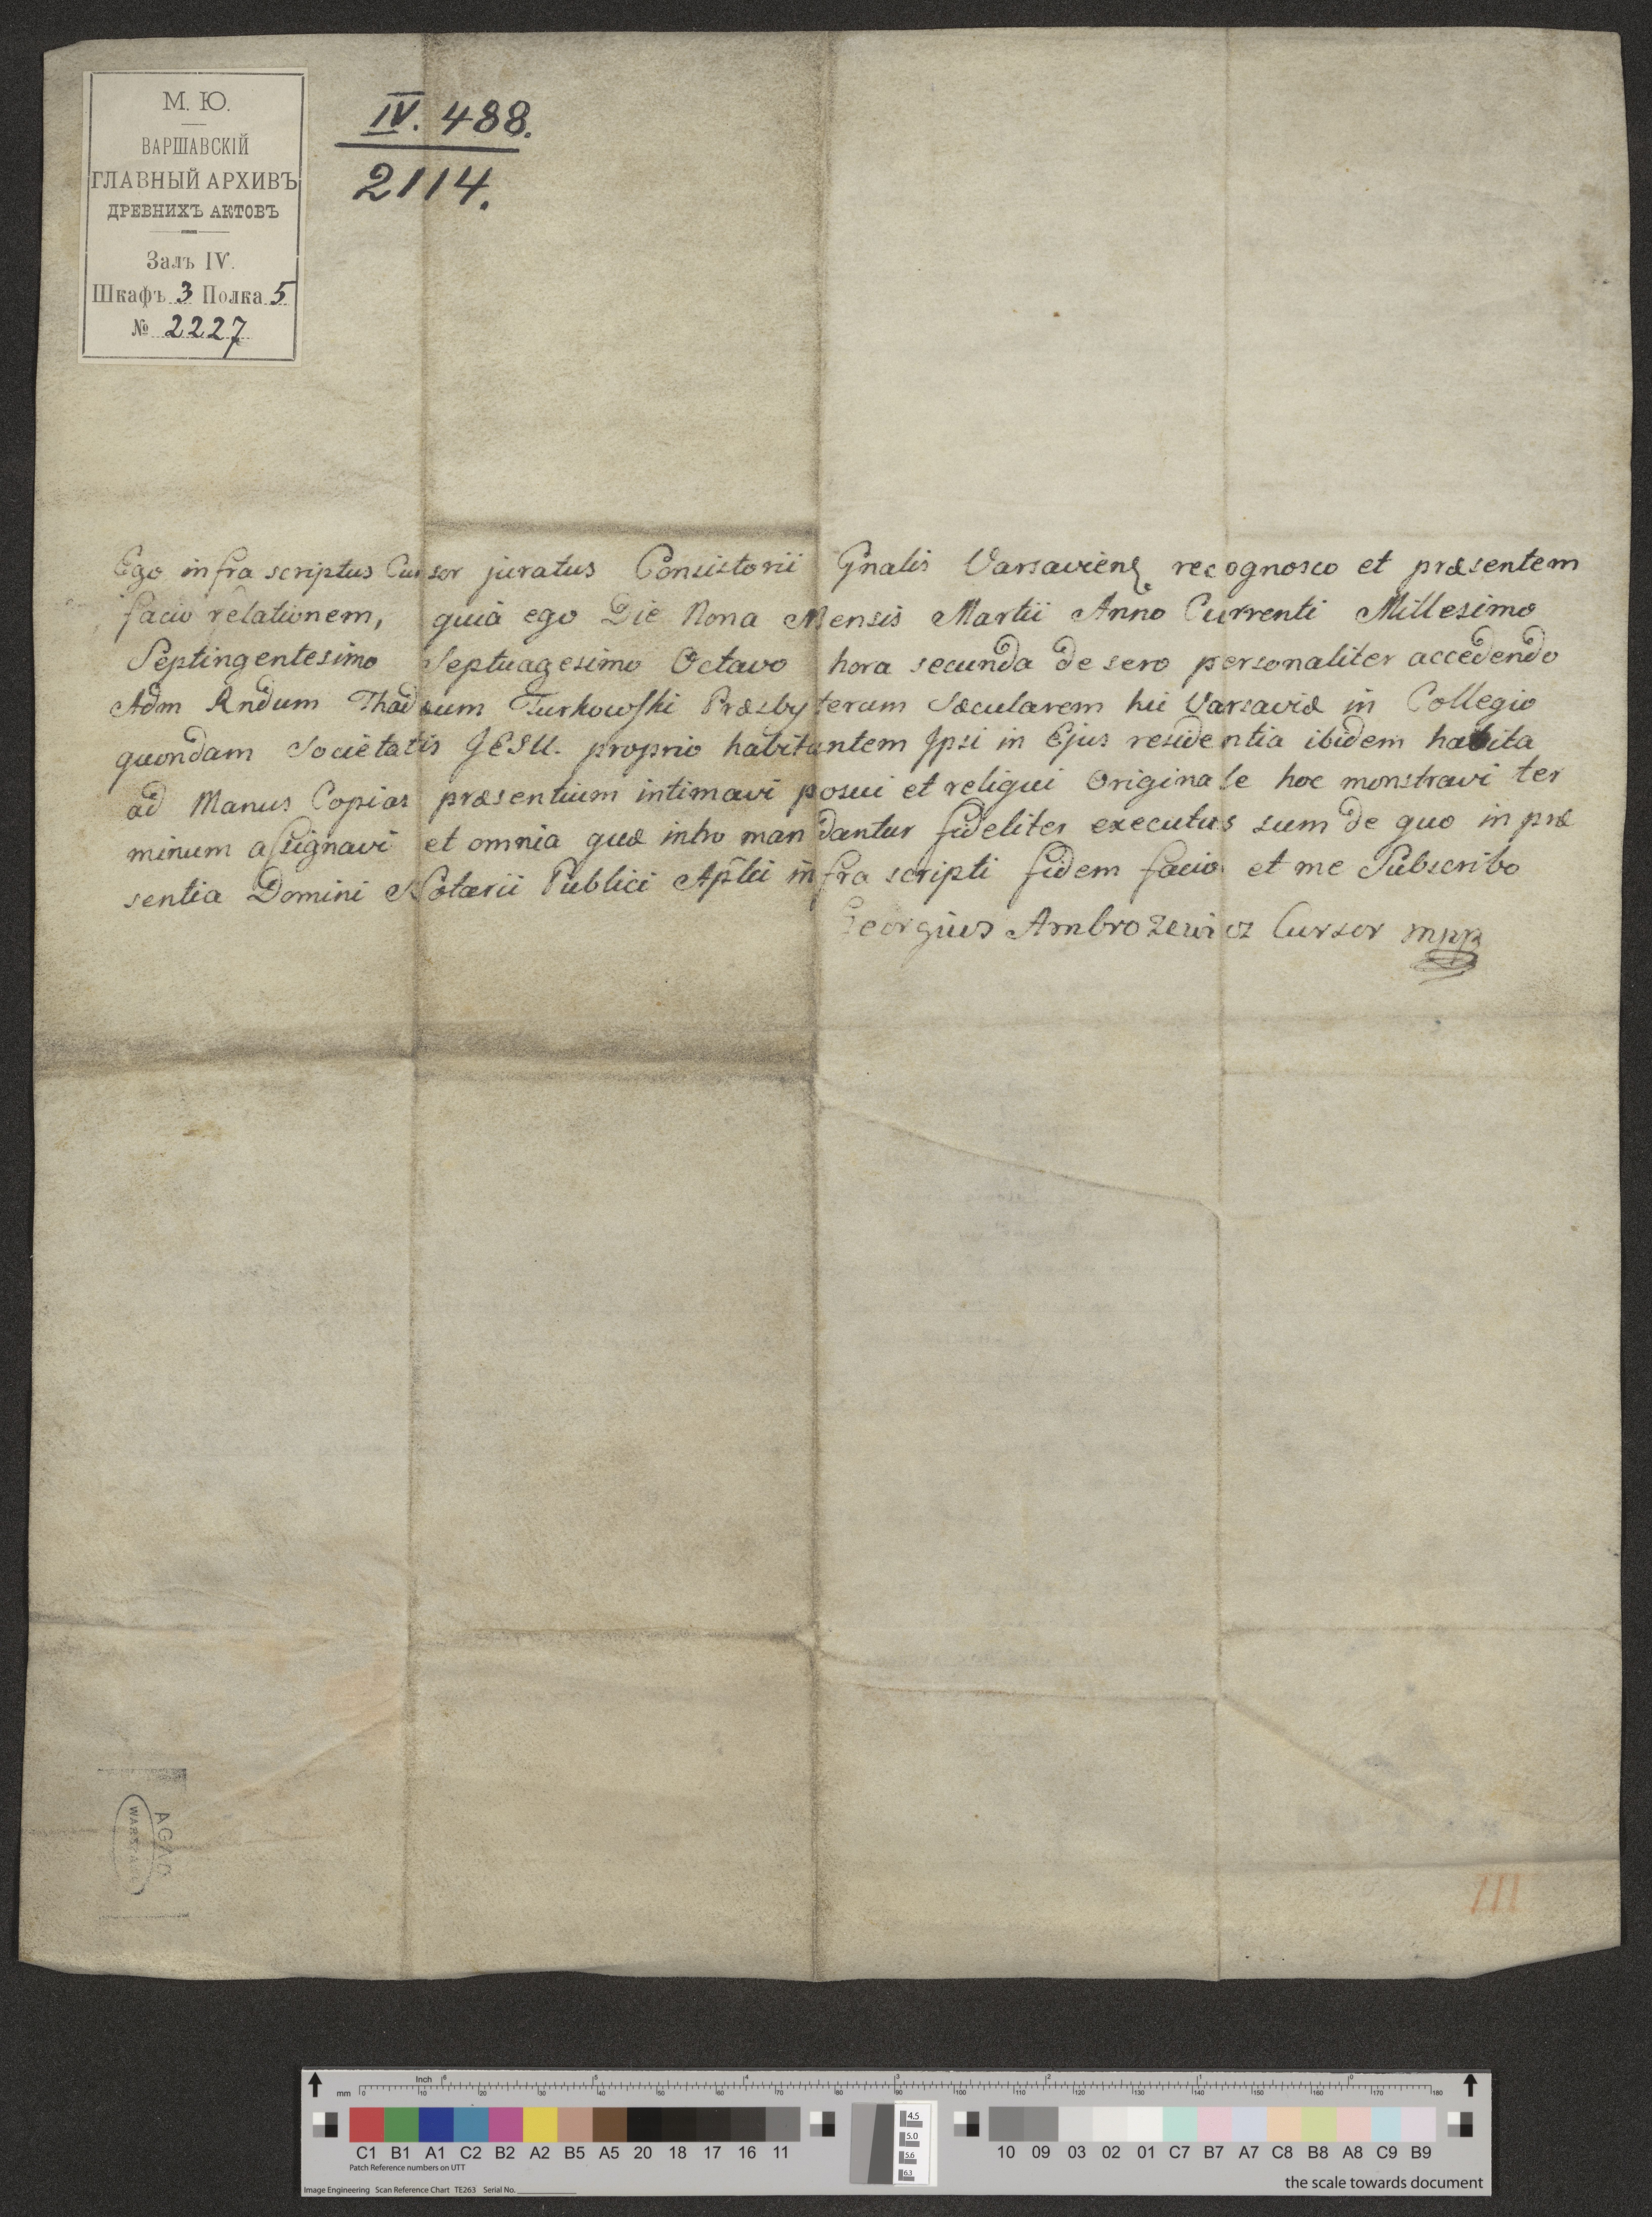 М. Ю.
ВАРШАВСКІЙ
ГЛАВНЫЙ АРХИВЪ
ДРЕВНИХЪ АКТОВЪ
Залъ IV.
Шкафъ 3 Полка 5
№ 2227
IV. 488.
2114.
Ego infra scriptus Cursor juratus Consistorii Gnalis Varsavien recognosco et præsentem
facio relationem, quia ego Die Nona Mensis Martii Anno Currenti Millesimo
Septingentesimo Septuagesimo Octavo hora secunda de sero personaliter accedendo
Adm Rndum Thadæum Turkowſki Præsbyterum Sæcularem hic Varsaviæ in Collegio
quondam Societatis JESU. proprio habitantem Ipsi in Ejus residentia ibidem habita
ad Manus Copias præsentium intimavi posui et reliqui Originale hoc monstravi ter
minum aſsignavi et omnia quæ intro mandantur fideliter executus sum de quo in præ
sentia Domini Notarii Publici Aplici infra scripti fidem facio et me Subscribo
Georgius Ambrozewicz Cursor mpp
AGAD
WARSZAWA
III
Inch
mm 0 10 20 30 40 50 60 70 80 90 100 110 120 130 140 150 160 170 180
4.5
5.0
5.6
6.3
C1 B1 A1 C2 B2 A2 B5 A5 20 18 17 16 11 10 09 03 02 01 C7 B7 A7 C8 B8 A8 C9 B9
Patch Reference numbers on UTT
Image Engineering Scan Reference Chart TE263 Serial No.
the scale towards document